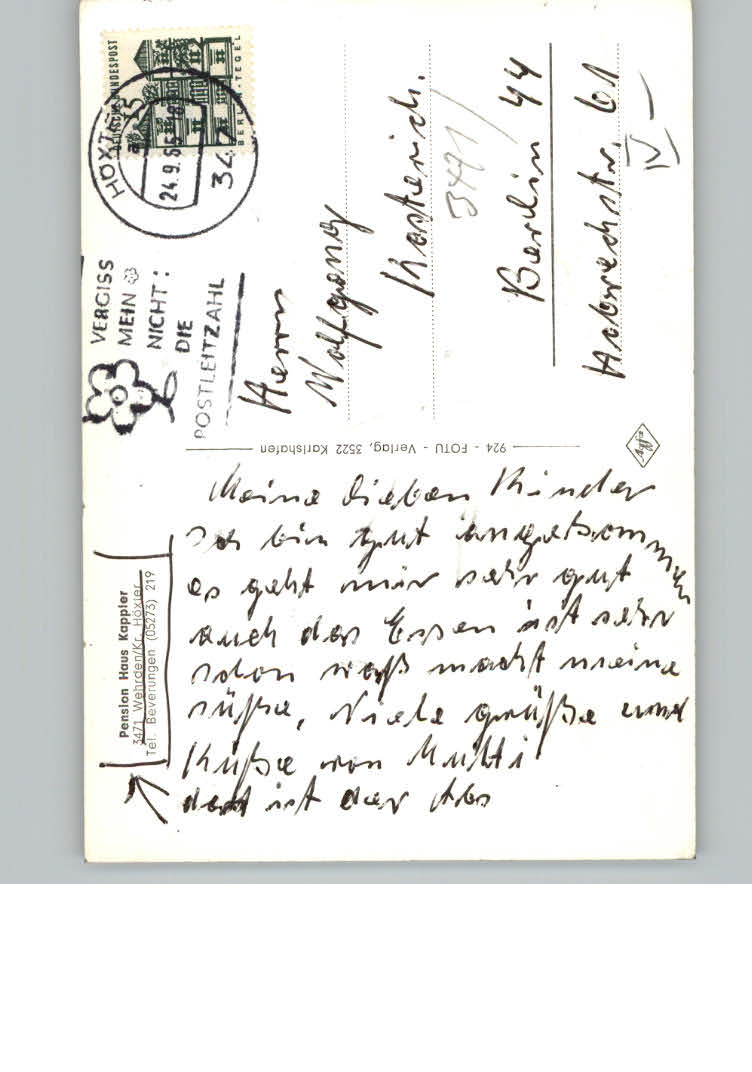 DEUTSCHE BUNDESPOST
BERLIN-TEGEL
HÖXTER
24.9.65-18
347
VERGISS
MEIN
NICHT:
DIE
POSTLEITZAHL
Herrn
Wolfgang
Kosterich.
3471/
Berlin 44
Hobrechstr. 61
IV
924 - FOTU - Verlag, 3522 Karlshafen
Meine Lieben Kinder
bin gut angekommen
es geht mir sehr gut
auch das Essen ist sehr
schon waß macht meine
süße, Viele grüße und
Küße von Mutti
ist der Abs
Pension Haus Kappler
3471 Wehrden/Kr. Höxter
Tel. Beverungen (05273) 219